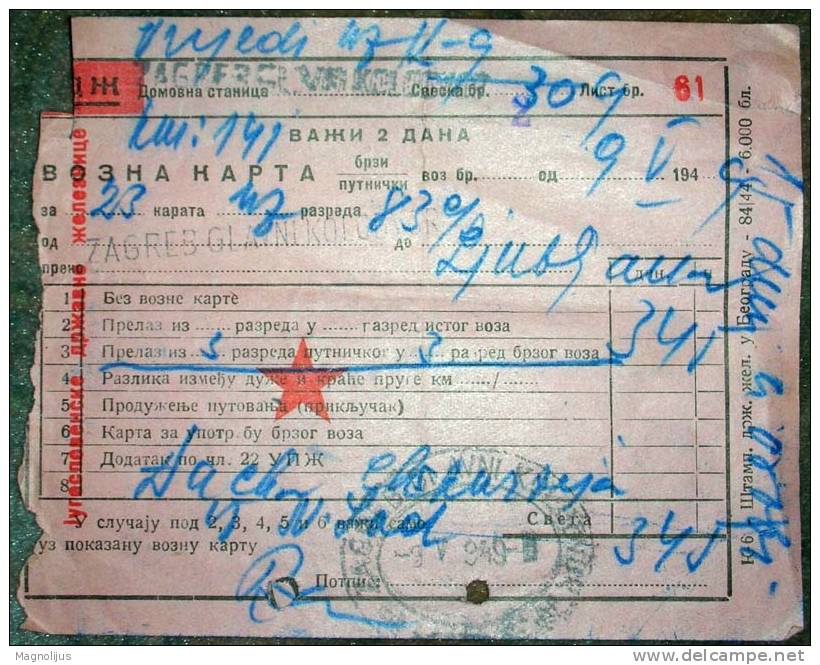 Vrijedi uz II-9
ZAGREB GL
ЈДЖ Домовна станица Свеска бр. 309 Лист бр. 61
km: 141 ВАЖИ 2 ДАНА
ВОЗНА КАРТА брзи путнички воз бр. од 9 V 1949
за 23 карата uz разреда 83%
од ZAGREB GLAVNI KOLODVOR до Ljubljana
преко дин.
1 Без возне карте
2 Прелаз из ...... разреда у ...... разред истог воза 345
3 Прелаз из 3 разреда путничког у 3 разред брзог воза
4 Разлика између дуже и краће пруге км ....../......
5 Продужење путовања (прикључак)
6 Карта за употребу брзог воза
7 Додатак по чл. 22 УПЖ
8 Đačka ekskurzija
У случају под 2, 3, 4, 5 и 6 важи само Свега 345
уз показану возну карту
-9 V 949
Потпис:
Југословенске државне железнице
Штамп. држ. жел. у Београду - 84|44| - 6.000 бл.